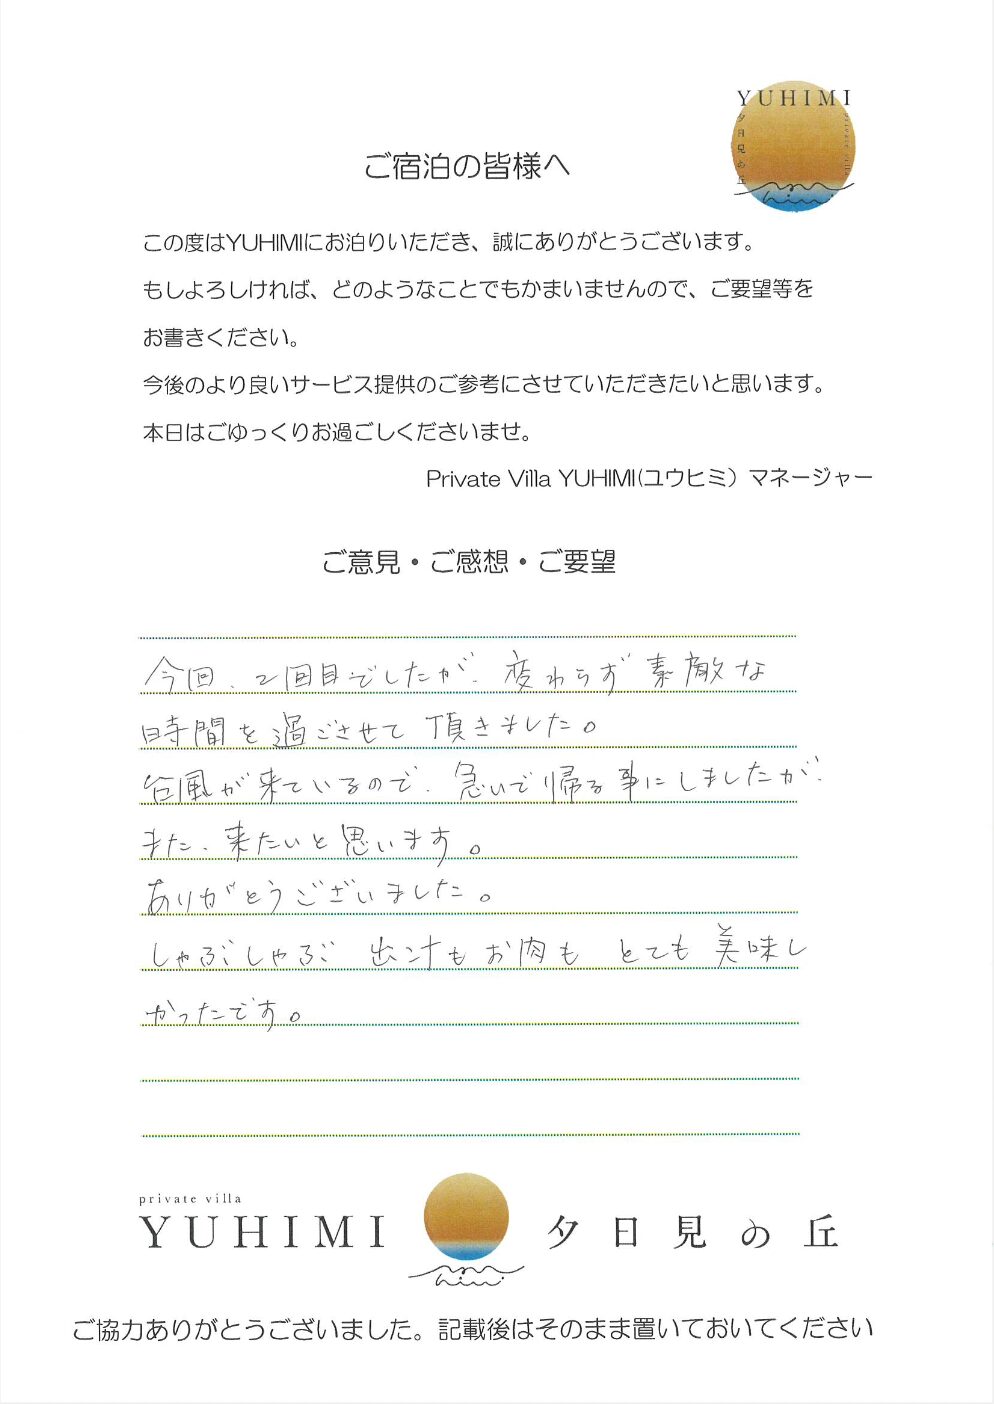 YUHIMI
夕日見の丘
private villa
ご宿泊の皆様へ
この度はYUHIMIにお泊りいただき、誠にありがとうございます。
もしよろしければ、どのようなことでもかまいませんので、ご要望等を
お書きください。
今後のより良いサービス提供のご参考にさせていただきたいと思います。
本日はごゆっくりお過ごしくださいませ。
Private Villa YUHIMI(ユウヒミ）マネージャー
ご意見・ご感想・ご要望
今回、2回目でしたが、変わらず素敵な
時間を過ごさせて頂きました。
台風が来ているので、急いで帰る事にしましたが、
また、来たいと思います。
ありがとうございました。
しゃぶしゃぶ 出汁もお肉も とても美味し
かったです。
private villa
YUHIMI 夕日見の丘
ご協力ありがとうございました。記載後はそのまま置いておいてください